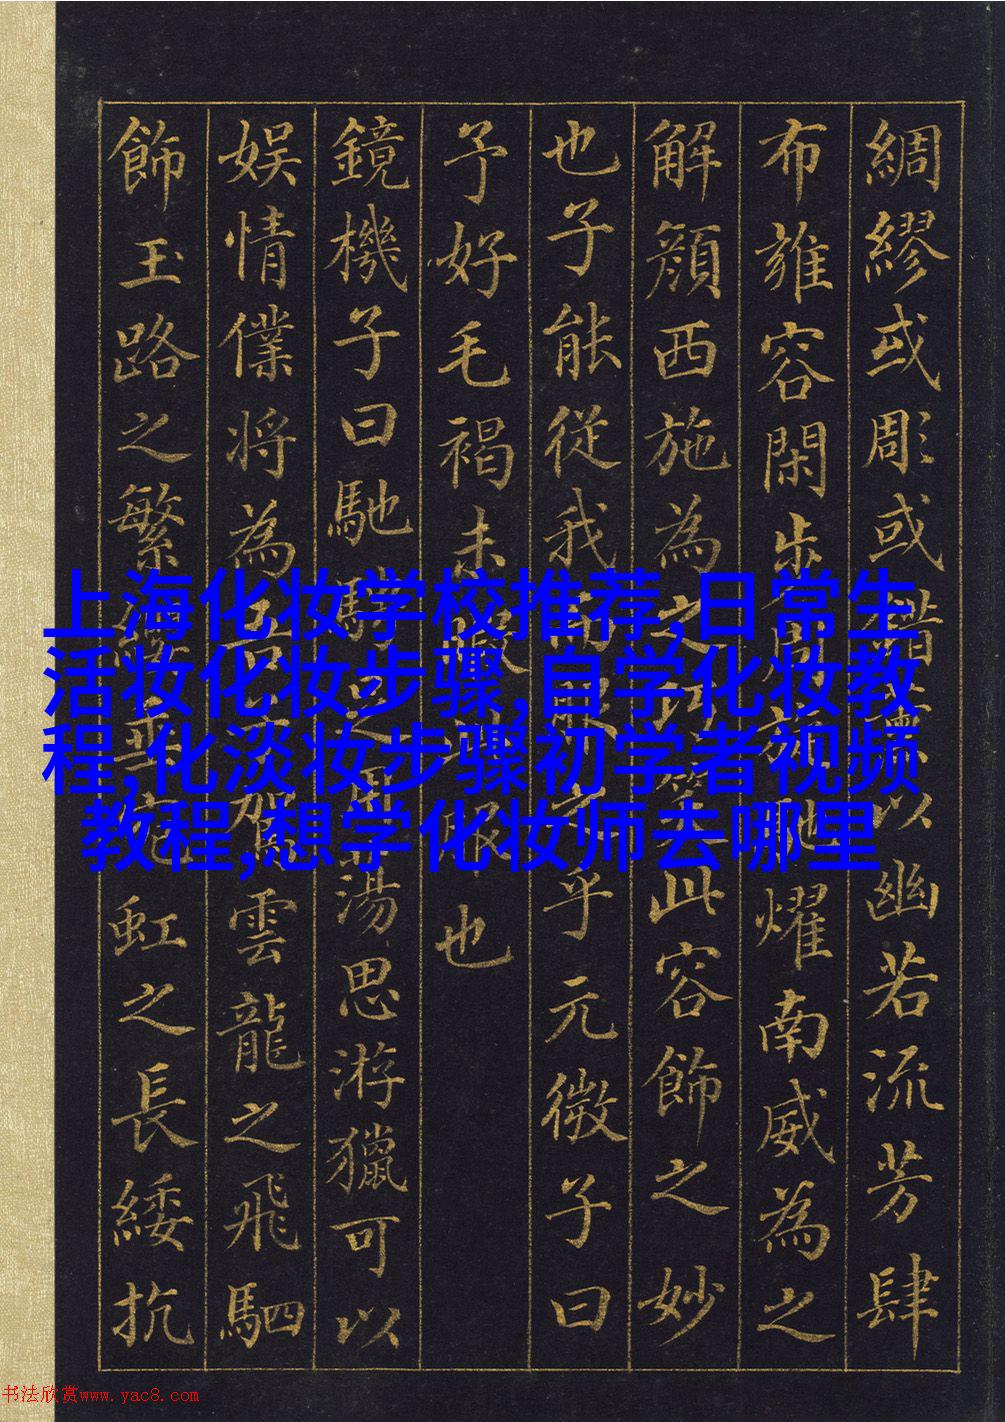 綢繆或彫或錯薰以幽若流芳肆
布雍容閑步周旋馳耀南威為之
解顏西施為之巧笑此容飾之妙
也子能從我而服之乎元微子曰
予好毛褐未暇此服也
鏡機子曰馳騁足用蕩思游獵可以
娛情僕將為吾子駕雲龍之飛駟
飾玉路之繁纓垂宛虹之長綏抗
上海化妆学校推荐,日常生
活妆化妆步骤,自学化妆教
程,化淡妆步骤初学者视频
教程,想学化妆师去哪里
书法欣赏www.yac8.com